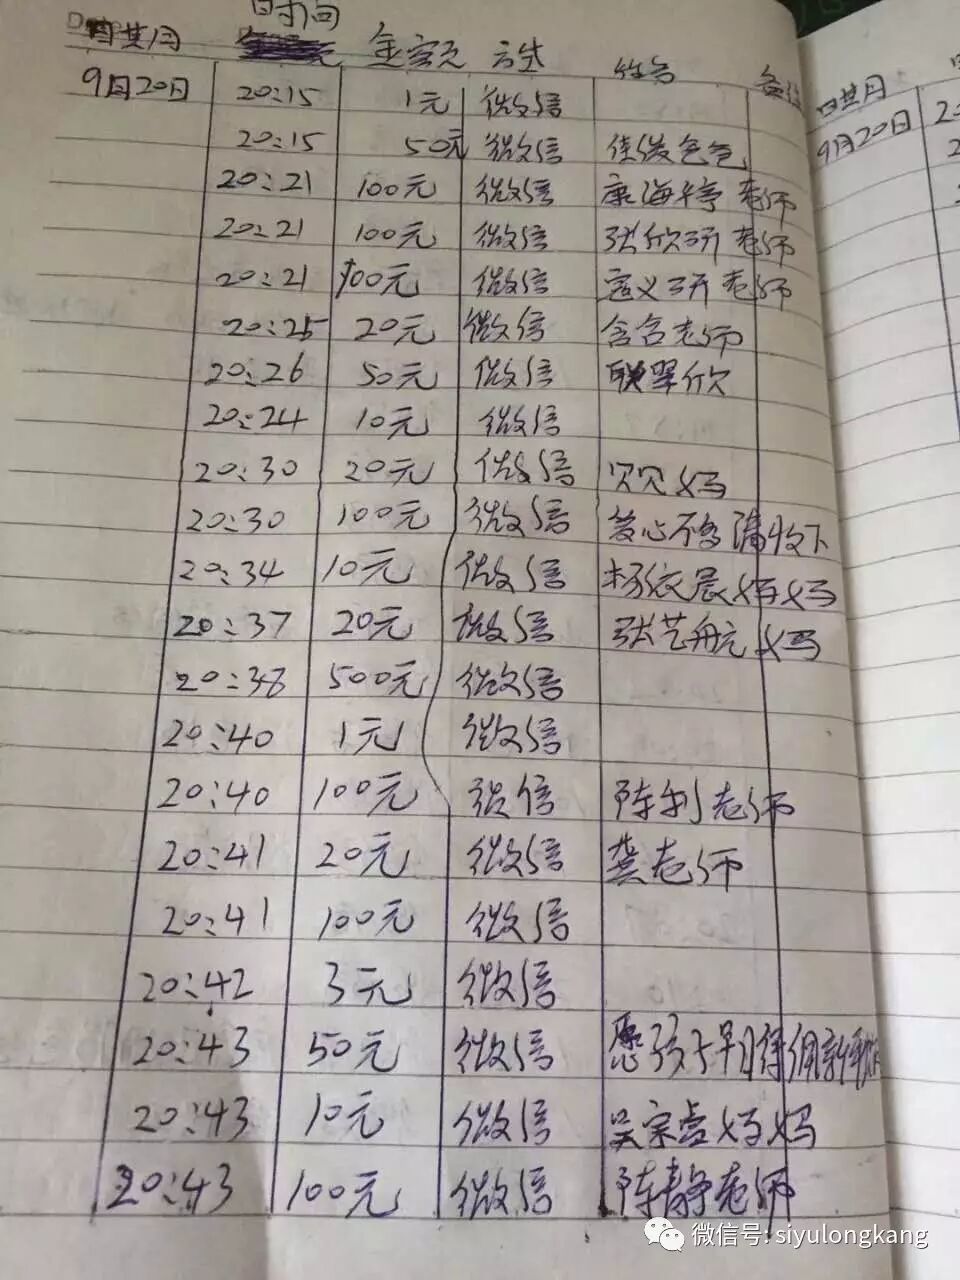 日期 时间 金额 方式 姓名 备注
9月20日 20:15 1元 微信
20:15 50元 微信 佳俊爸爸
20:21 100元 微信 康海婷老师
20:21 100元 微信 张欣研老师
20:21 100元 微信 寇义研老师
20:25 20元 微信 含含老师
20:26 50元 微信 耿翠欣
20:24 10元 微信
20:30 20元 微信 贝贝妈
20:30 100元 微信 爱心不多请收下
20:34 10元 微信 杨依晨妈妈
20:37 20元 微信 张艺航妈
20:38 500元 微信
20:40 1元 微信
20:40 100元 微信 陈利老师
20:41 20元 微信 龚老师
20:41 100元 微信
20:42 3元 微信
20:43 50元 微信 愿孩子早日得佣新
20:43 10元 微信 吴宗 妈妈
20:43 100元 微信 陈静老师
日期
9月20日
微信号: siyulongkang